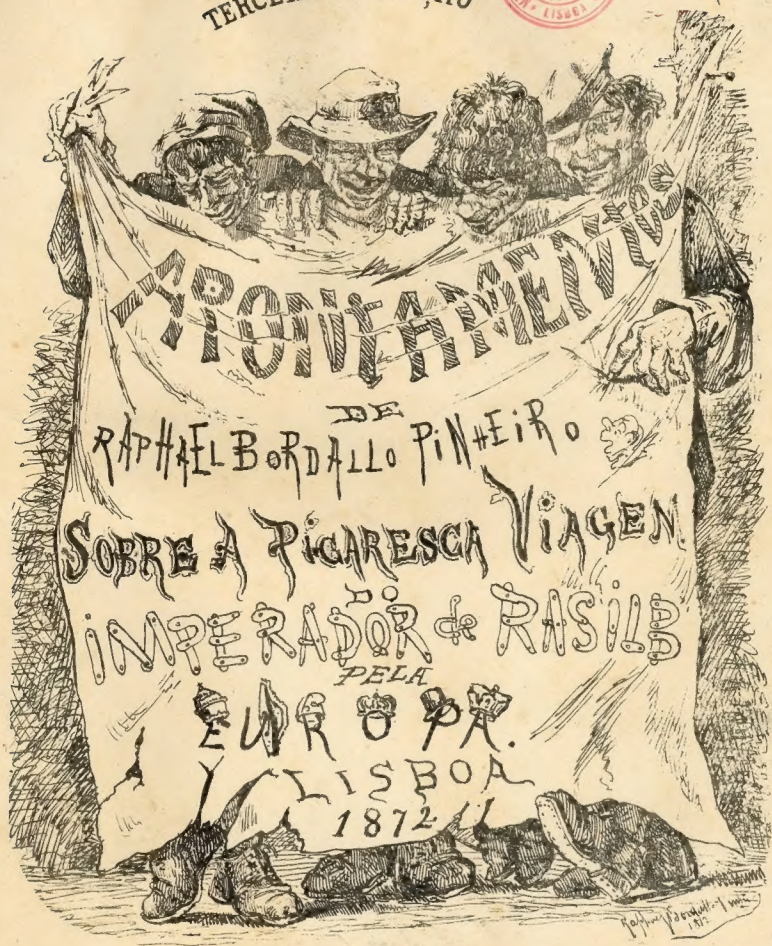 APONTAMENTOS
DE
RAPHAEL BORDALLO PINHEIRO
SOBRE A PICARESCA VIAGEN
DO
IMPERADOR de RASILB
PELA
EUROPA.
LISBOA
1872
LISBOA
1872